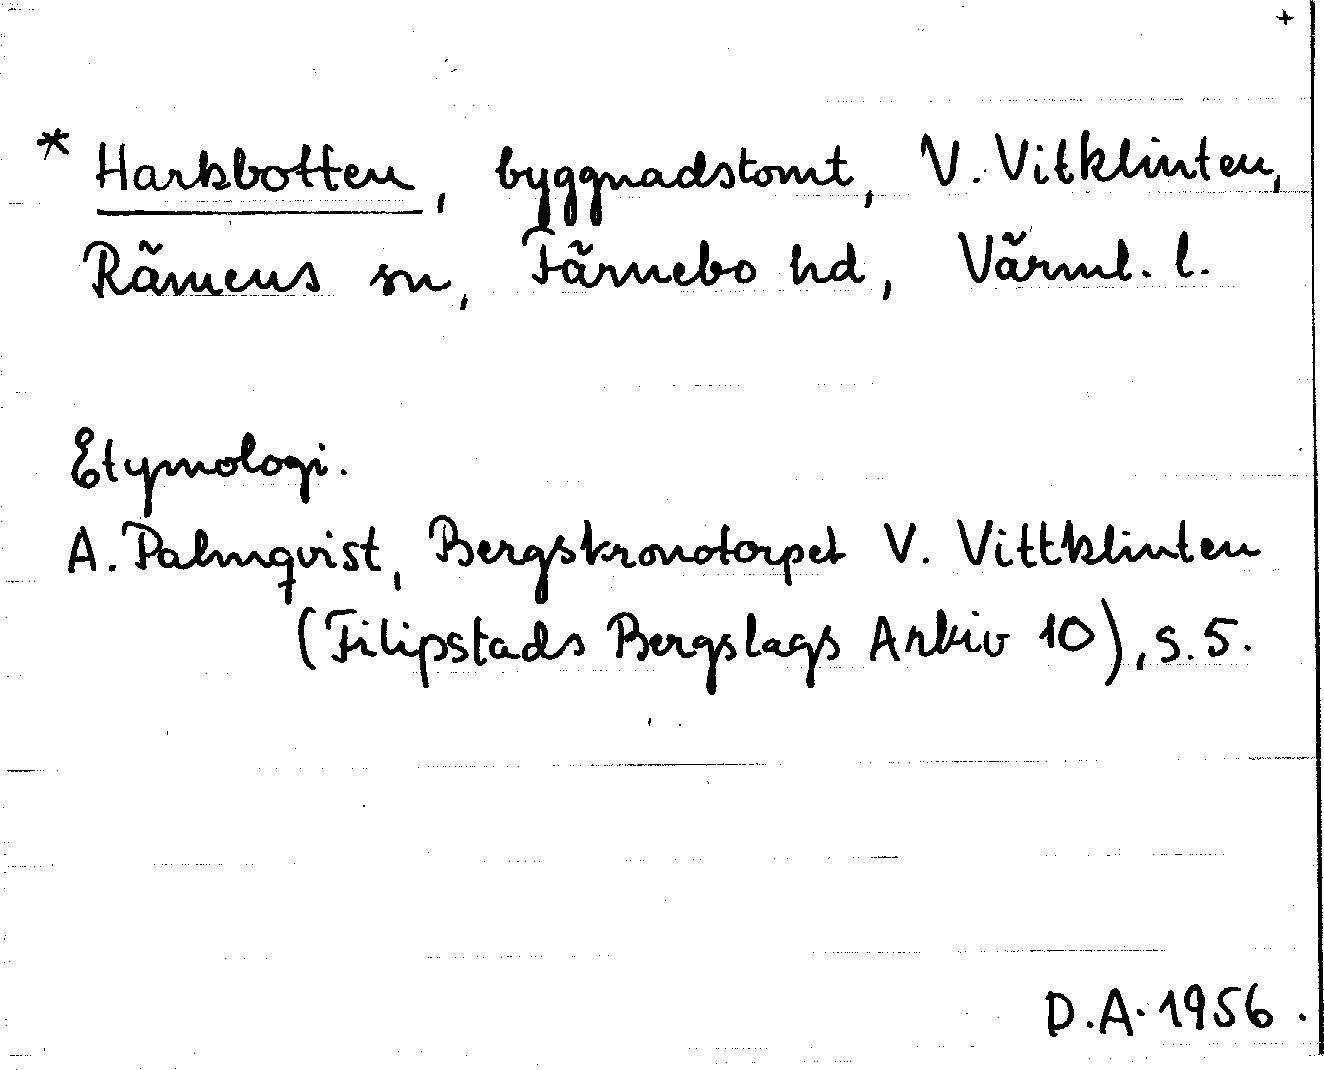 +
* Harkbotten, byggnadstomt, V. Vitklinten,
Rämens sn, Färnebo hd, Värml. l.
Etymologi.
A. Palmqvist, Bergskronotorpet V. Vittklinten
(Filipstads Bergslags Arkiv 10), s. 5.
D.A. 1956.